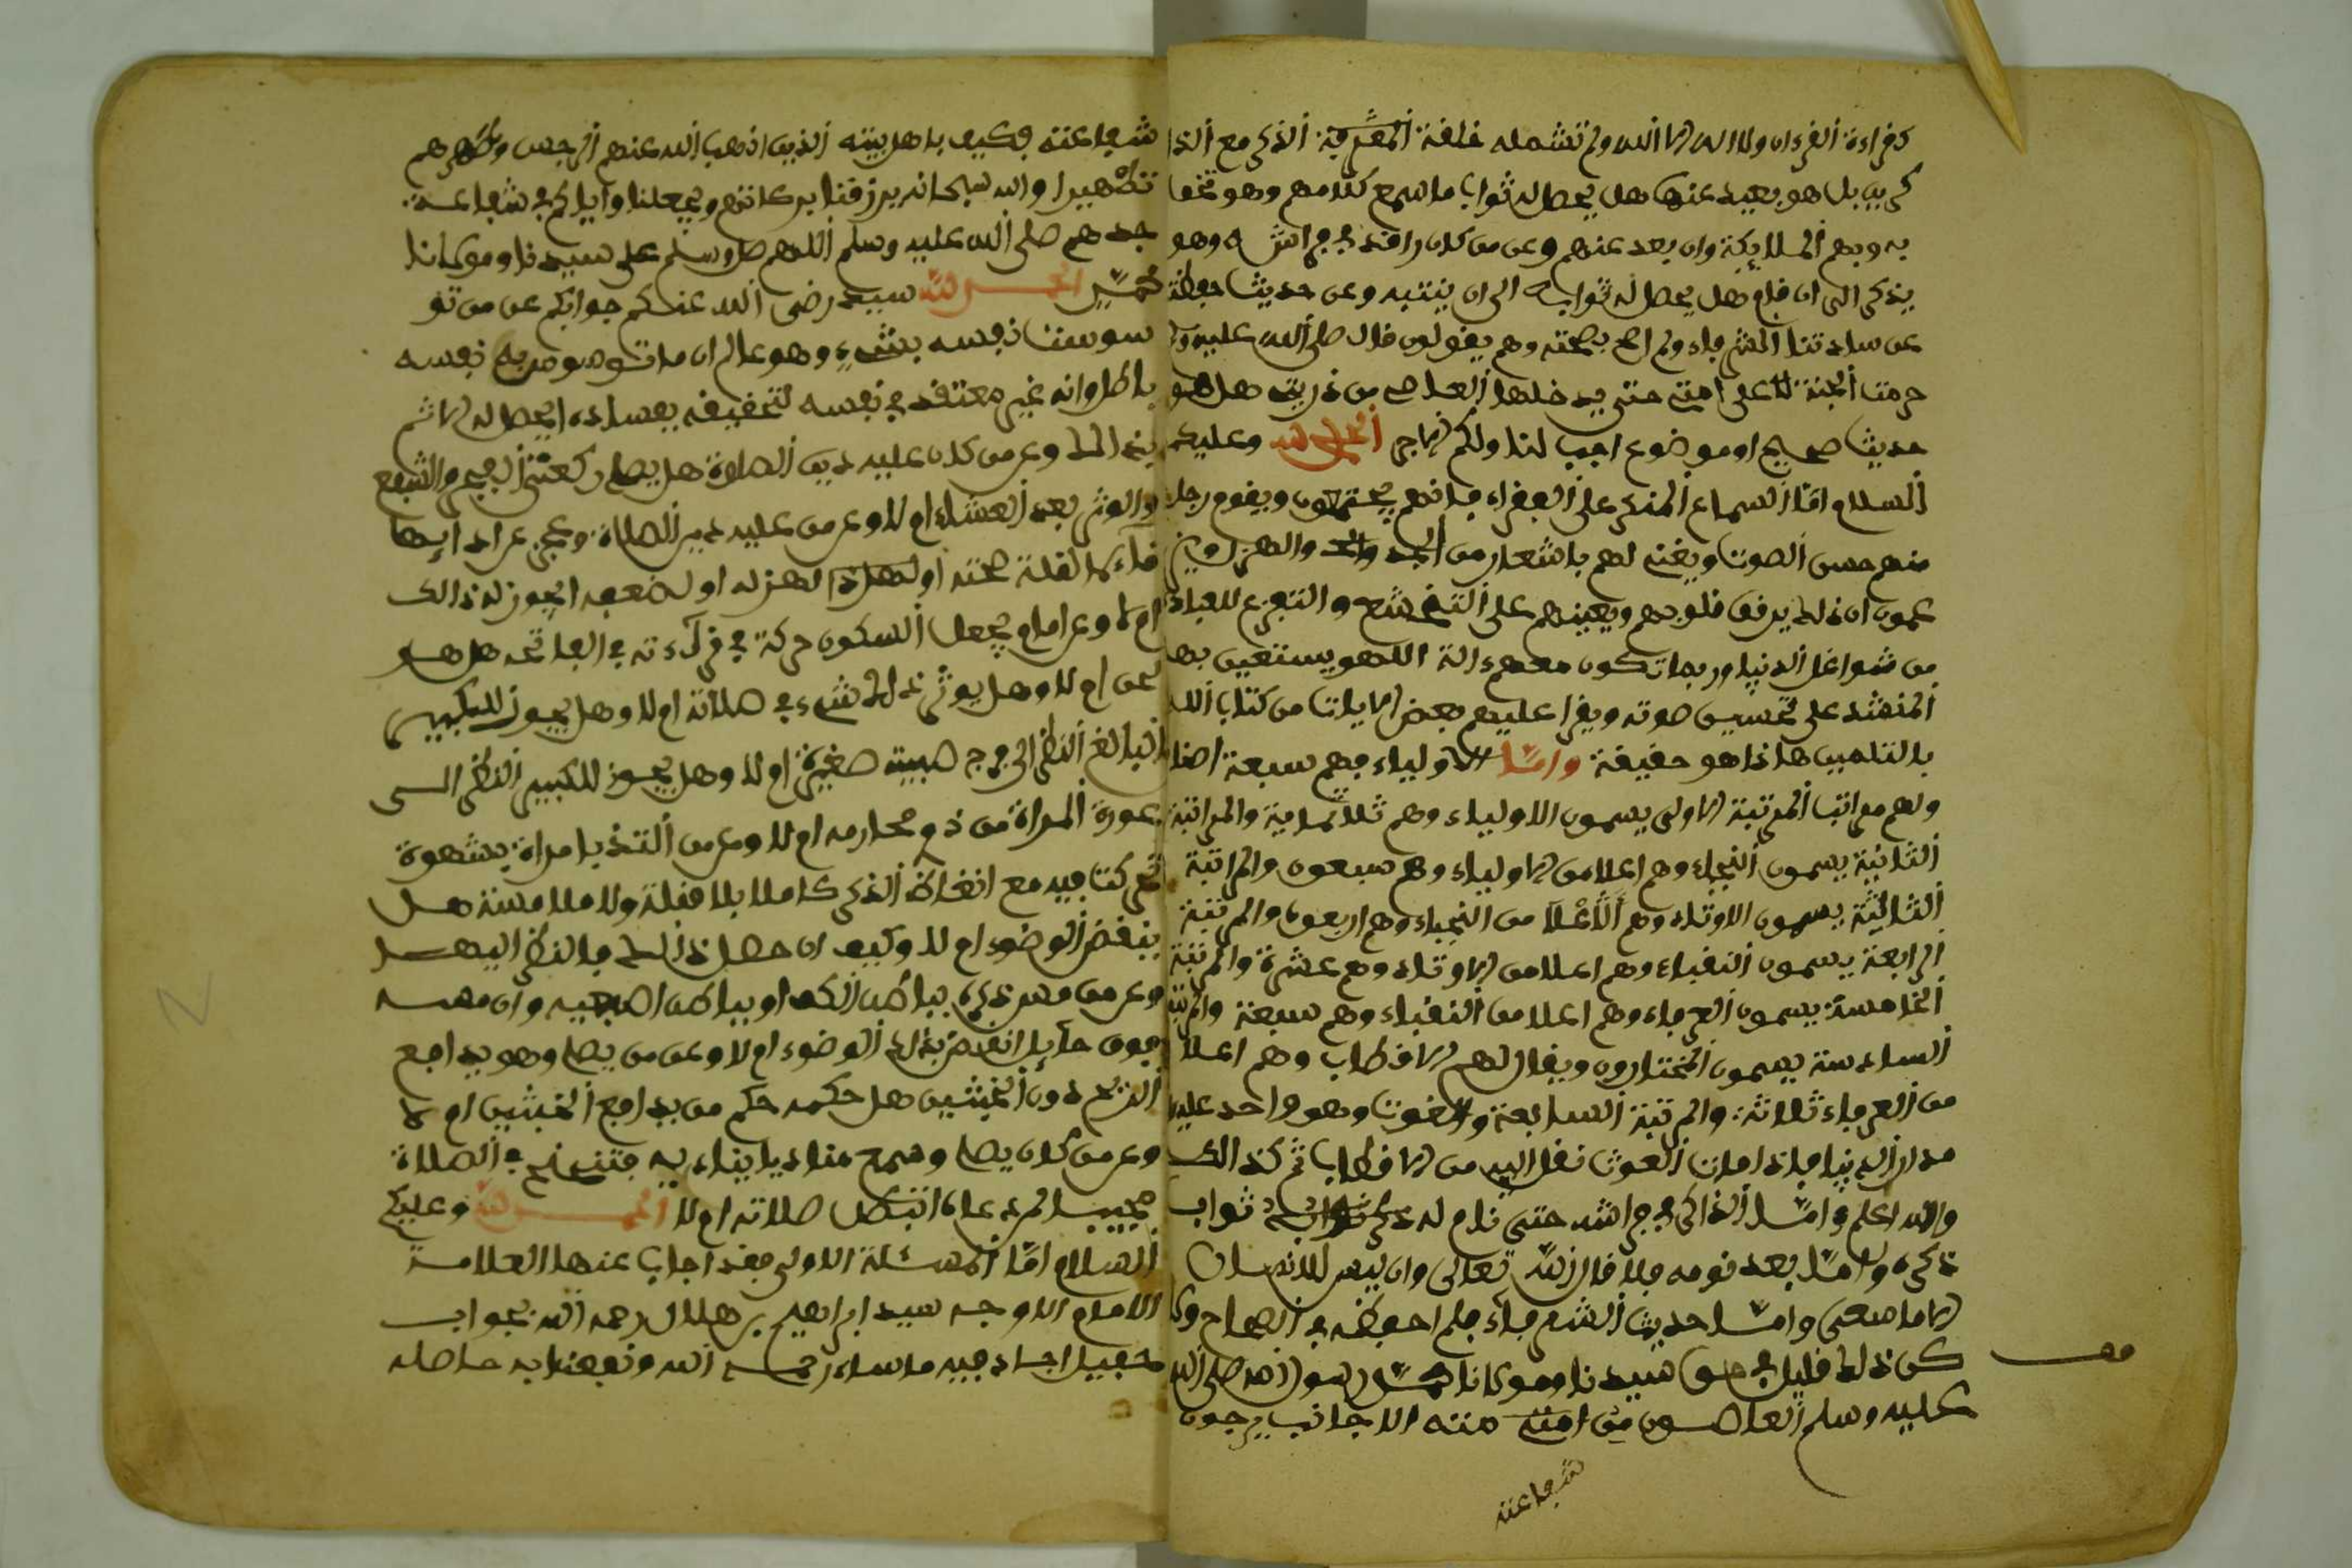 كقراءة القرءان ولا اله الا الله ولم تشمله خلفة المعرفة الذكر مع الذا
كرين بل هو بعيد عنها هل يحصل له ثواب ما سمع كلامهم وهو تحفا
به وبهم الملايكة وان بعد عنهم وعن من كان راقد في فراشه وهو
يذكر الى ان قام هل يحصل له ثوابه الى ان ينتبه وعن حديث حفظته
عن ساداتنا الشرفاء ولم اصح بصحته وهم يقولون قال صلى الله عليه وسلم
حرمت الجنة على امتي حتى يدخلها العاصي من ذريتي هل هو
حديث صحيح او موضوع اجب لنا ولكم الاجر الحمد لله وعليكم
السلام امّا السماع المذكر على الفقراء فانهم يجتمعون ويقوم رجل
منهم حسن الصوت ويغني لهم باشعار من الجد والهزل ويز
عمون ان ذلك يرقق قلوبهم ويعينهم على التخشع والتفرغ للعبادة
من شواغل الدنيا وربما تكون معهم ءالة اللهو يستعين بها
المنشد على تحسين صوته ويقرا عليهم بعض الايات من كتاب الله
بالتلحين هاذا هو حقيقة وامّا الاولياء فهم سبعة اصنا
ولهم مراتب المرتبة الاولى يسمون الاولياء وهم ثلاثماية والمرتبة
الثانية يسمون النجباء وهم اعلا من الاولياء وهم سبعون والمرتبة
الثالثة يسمون الاوتاد وهم الاعلا من النجباء وهم اربعون والمرتبة
الرابعة يسمون النقباء وهم اعلا من الاوتاد وهم عشرة والمرتبة
الخامسة يسمون العرفاء وهم اعلا من النقباء وهم سبعة والمرتبة
السادسة يسمون المختارون ويقال لهم الاقطاب وهم اعلا
من العرفاء ثلاثة والمرتبة السابعة والغوث وهو واحد عليه
مدار الدنيا فاذا مات الغوث نقل اليه من الاقطاب ثم كذالك
والله اعلم وامّا الذاكر في فراشه حتى نام له ذكر ثوابه ثواب
ذكره وامّا بعد نومه فلا قال الله تعالى وان ليس للانسان
الا ما سعى وامّا حديث الشرفاء فلم احفظه في الصحاح ولا
كن ذلك قليل في حق سيدنا ومولانا محمد رسول الله صلى الله
عليه وسلم العاصون من امته منه الاجانب يرجون
شفاعته
شفاعته فكيف باهل بيته الذين اذهب الله عنهم الرجس وطهرهم
تطهيرا والله سبحانه يرزقنا بركاتهم ويجعلنا واياكم في شفاعة
جدهم صلى الله عليه وسلم اللهم صل وسلم على سيدنا ومولانا
محمد الحمد لله سيد رضى الله عنكم جوابكم عن من تو
سوست نفسه بشيء وهو عالم ان ما توسوس به نفسه
باطل وانه غير معتقد في نفسه لتحقيقه بفساده ايحصل له اثم
بذالك وعن من كان عليه دين الصلاة هل يصل ركعتي الفجر والشفع
والوتر بعد العشاء ام لا وعن من عليه دين الصلاة وعجز عن ادايها
قاءما لقلة صحته او لهزله او لضعفه ايجوز له ذالك
ام لا وعن امام يجعل السكون حركة في قراءته في الفاتحة هل هو
لحن ام لا وهل يوثر ذلك شيء في صلاته ام لا وهل يجوز للكبير
البالغ النظر الى فرج صبية صغيرة ام لا وهل يجوز للكبير النظر الى
عورة المراة من ذو محارمه ام لا وعن من التذ بامراة بشهوة
تحركت فيه مع انعاظ الذكر كاملا بلا قبلة ولا ملامسة هل
ينقض الوضوء ام لا وكيف ان حصل ذالك بالنظر اليها
وعن من مس ذكره بباطن الكف او بباطن اصبعيه وان مسه
فوق حايل انقض بذلك الوضوء ام لا وعن من يصل وهو يدافع
الريح دون الخبثين هل حكمه حكم من يدافع الخبثين ام لا
وعن من كان يصل وسمع مناد يا يناديه فتنحنح في الصلاة
مجيبا لمن دعاه اتبطل صلاته ام لا الحمد لله وعليكم
السلام امّا المسئلة الاولى فقد اجاب عنها العلامة
الامام الاوجه سيد ابراهيم بن هلال رحمه الله بجواب
حفيل اجاد فيه ماشاء رحمه الله ونفعنا به حاصله